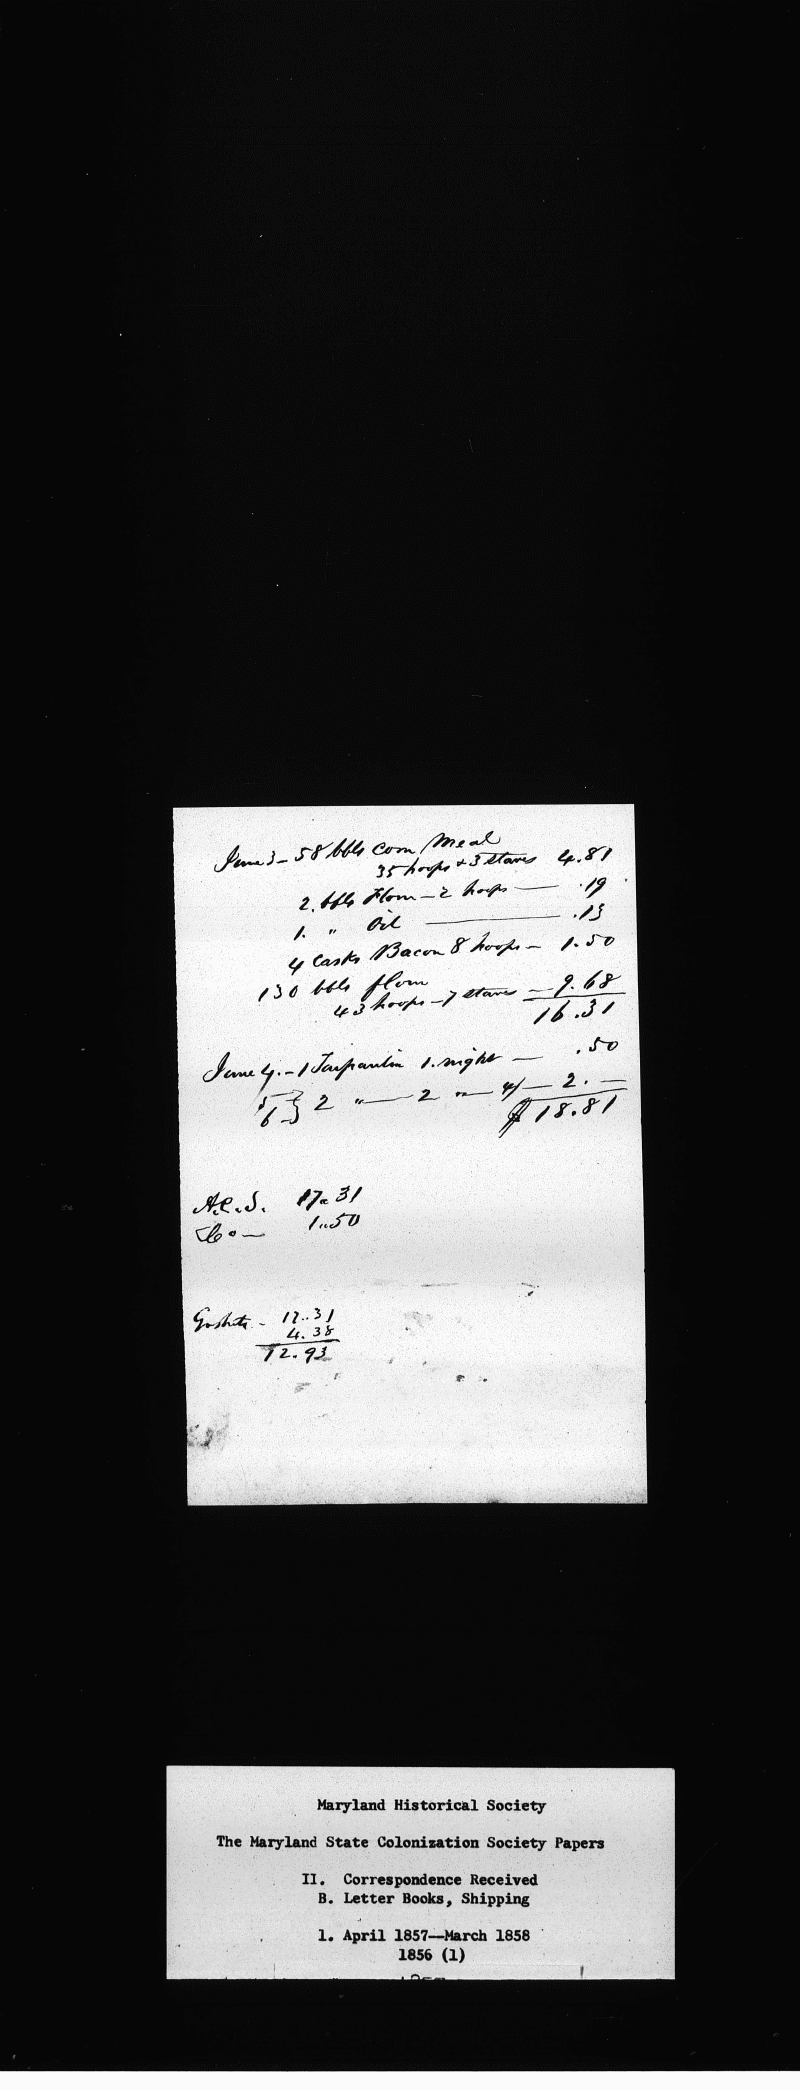 June 3 - 58 bbls Corn Meal
35 hoops & 3 staves 4.81
2. bbls Flour - 2 hoops — .19
1. " Oil — .13
4 Casks Bacon 8 hoops - 1.50
130 bbls flour
43 hoops - 7 staves - 9.68
16.31
June 4. - 1 Tarpaulin 1. night — .50
5 } 2 " — 2 " — 4/ — 2. —
6
$ 18.81
A.C.S. 17.31
Co — 1.50
17.31
4.38
12.93
Maryland Historical Society
The Maryland State Colonization Society Papers
II. Correspondence Received
B. Letter Books, Shipping
1. April 1857--March 1858
1856 (1)